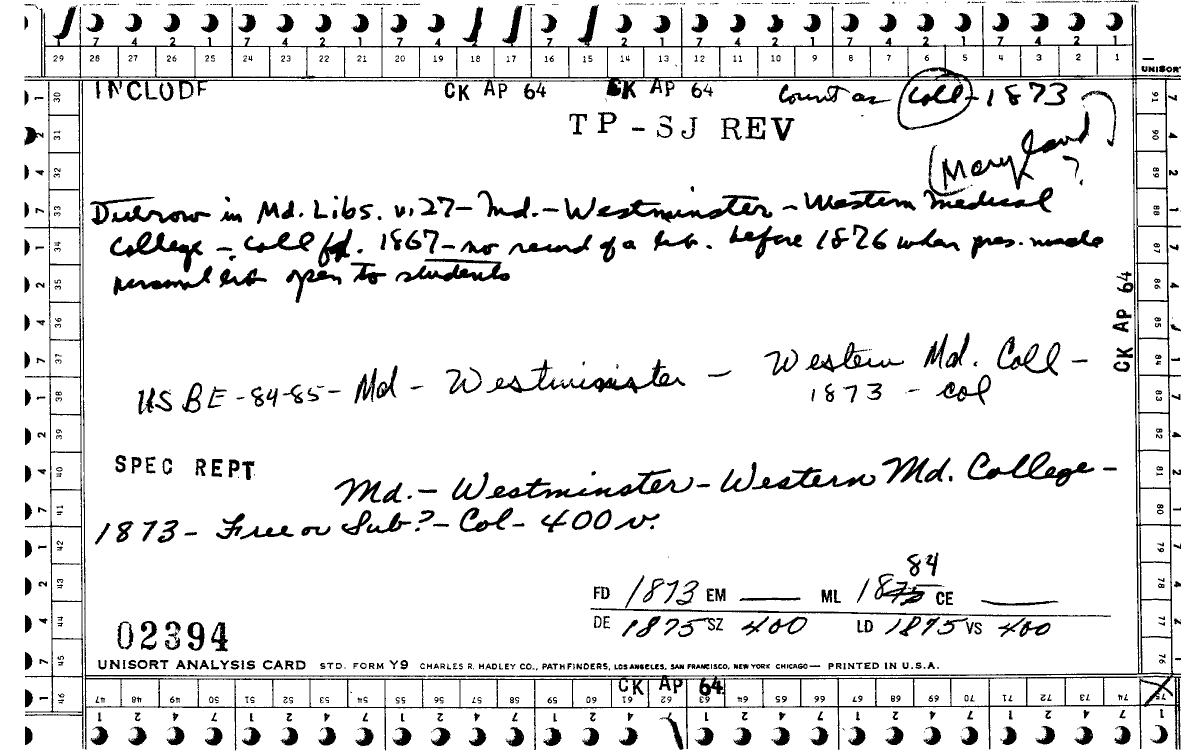 7 4 2 1 7 4 2 1 7 4 2 1 7 4 2 1 7 4 2 1 7 4 2 1 7 4 2 1
29 28 27 26 25 24 23 22 21 20 19 18 17 16 15 14 13 12 11 10 9 8 7 6 5 4 3 2 1
UNISORT
INCLUDE CK AP 64 CK AP 64 Count as Coll - 1873
TP - SJ REV
Maryland ?
in Md. Libs. v. 27 - Md. - Westminster - Western Medical
College - Coll fd. 1867 - no record of a lib. before 1876 when pres. made
personal lib open to students
CK AP 64
US BE - 84-85 - Md - Westminister - Western Md. Coll -
1873 - col
SPEC REPT
Md. - Westminster - Western Md. College -
1873 - Free or Sub? - Col - 400 v.
84
FD 1873 EM ML 1875 CE
DE 1875 SZ 400 LD 1875 VS 400
02394
UNISORT ANALYSIS CARD STD. FORM Y9 CHARLES R. HADLEY CO., PATHFINDERS, LOS ANGELES, SAN FRANCISCO, NEW YORK CHICAGO — PRINTED IN U.S.A.
CK AP 64
47 48 49 50 51 52 53 54 55 56 57 58 59 60 61 62 63 64 65 66 67 68 69 70 71 72 73 74 75